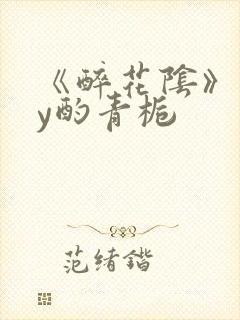 《醉花陰》
y酌青栀
范绪锴